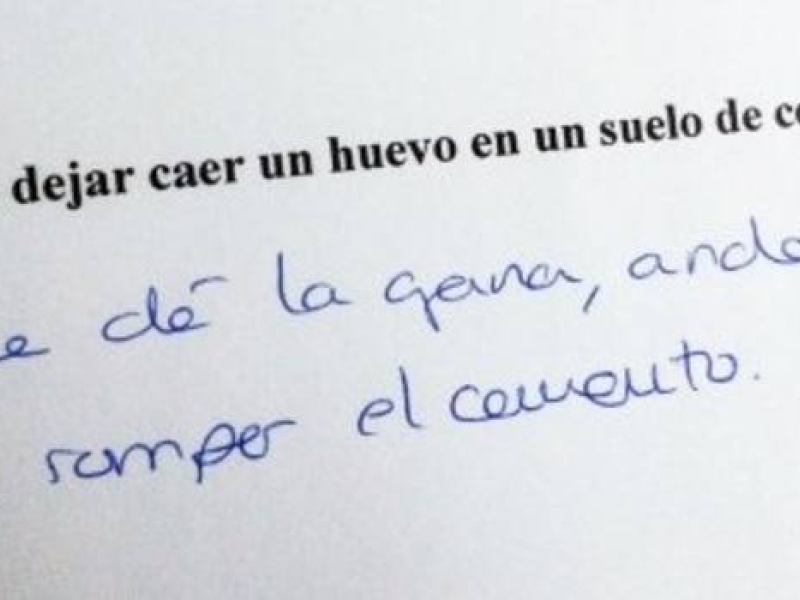 dejar caer un huevo en un suelo de ce
e dé la gana, anda
romper el cemento.